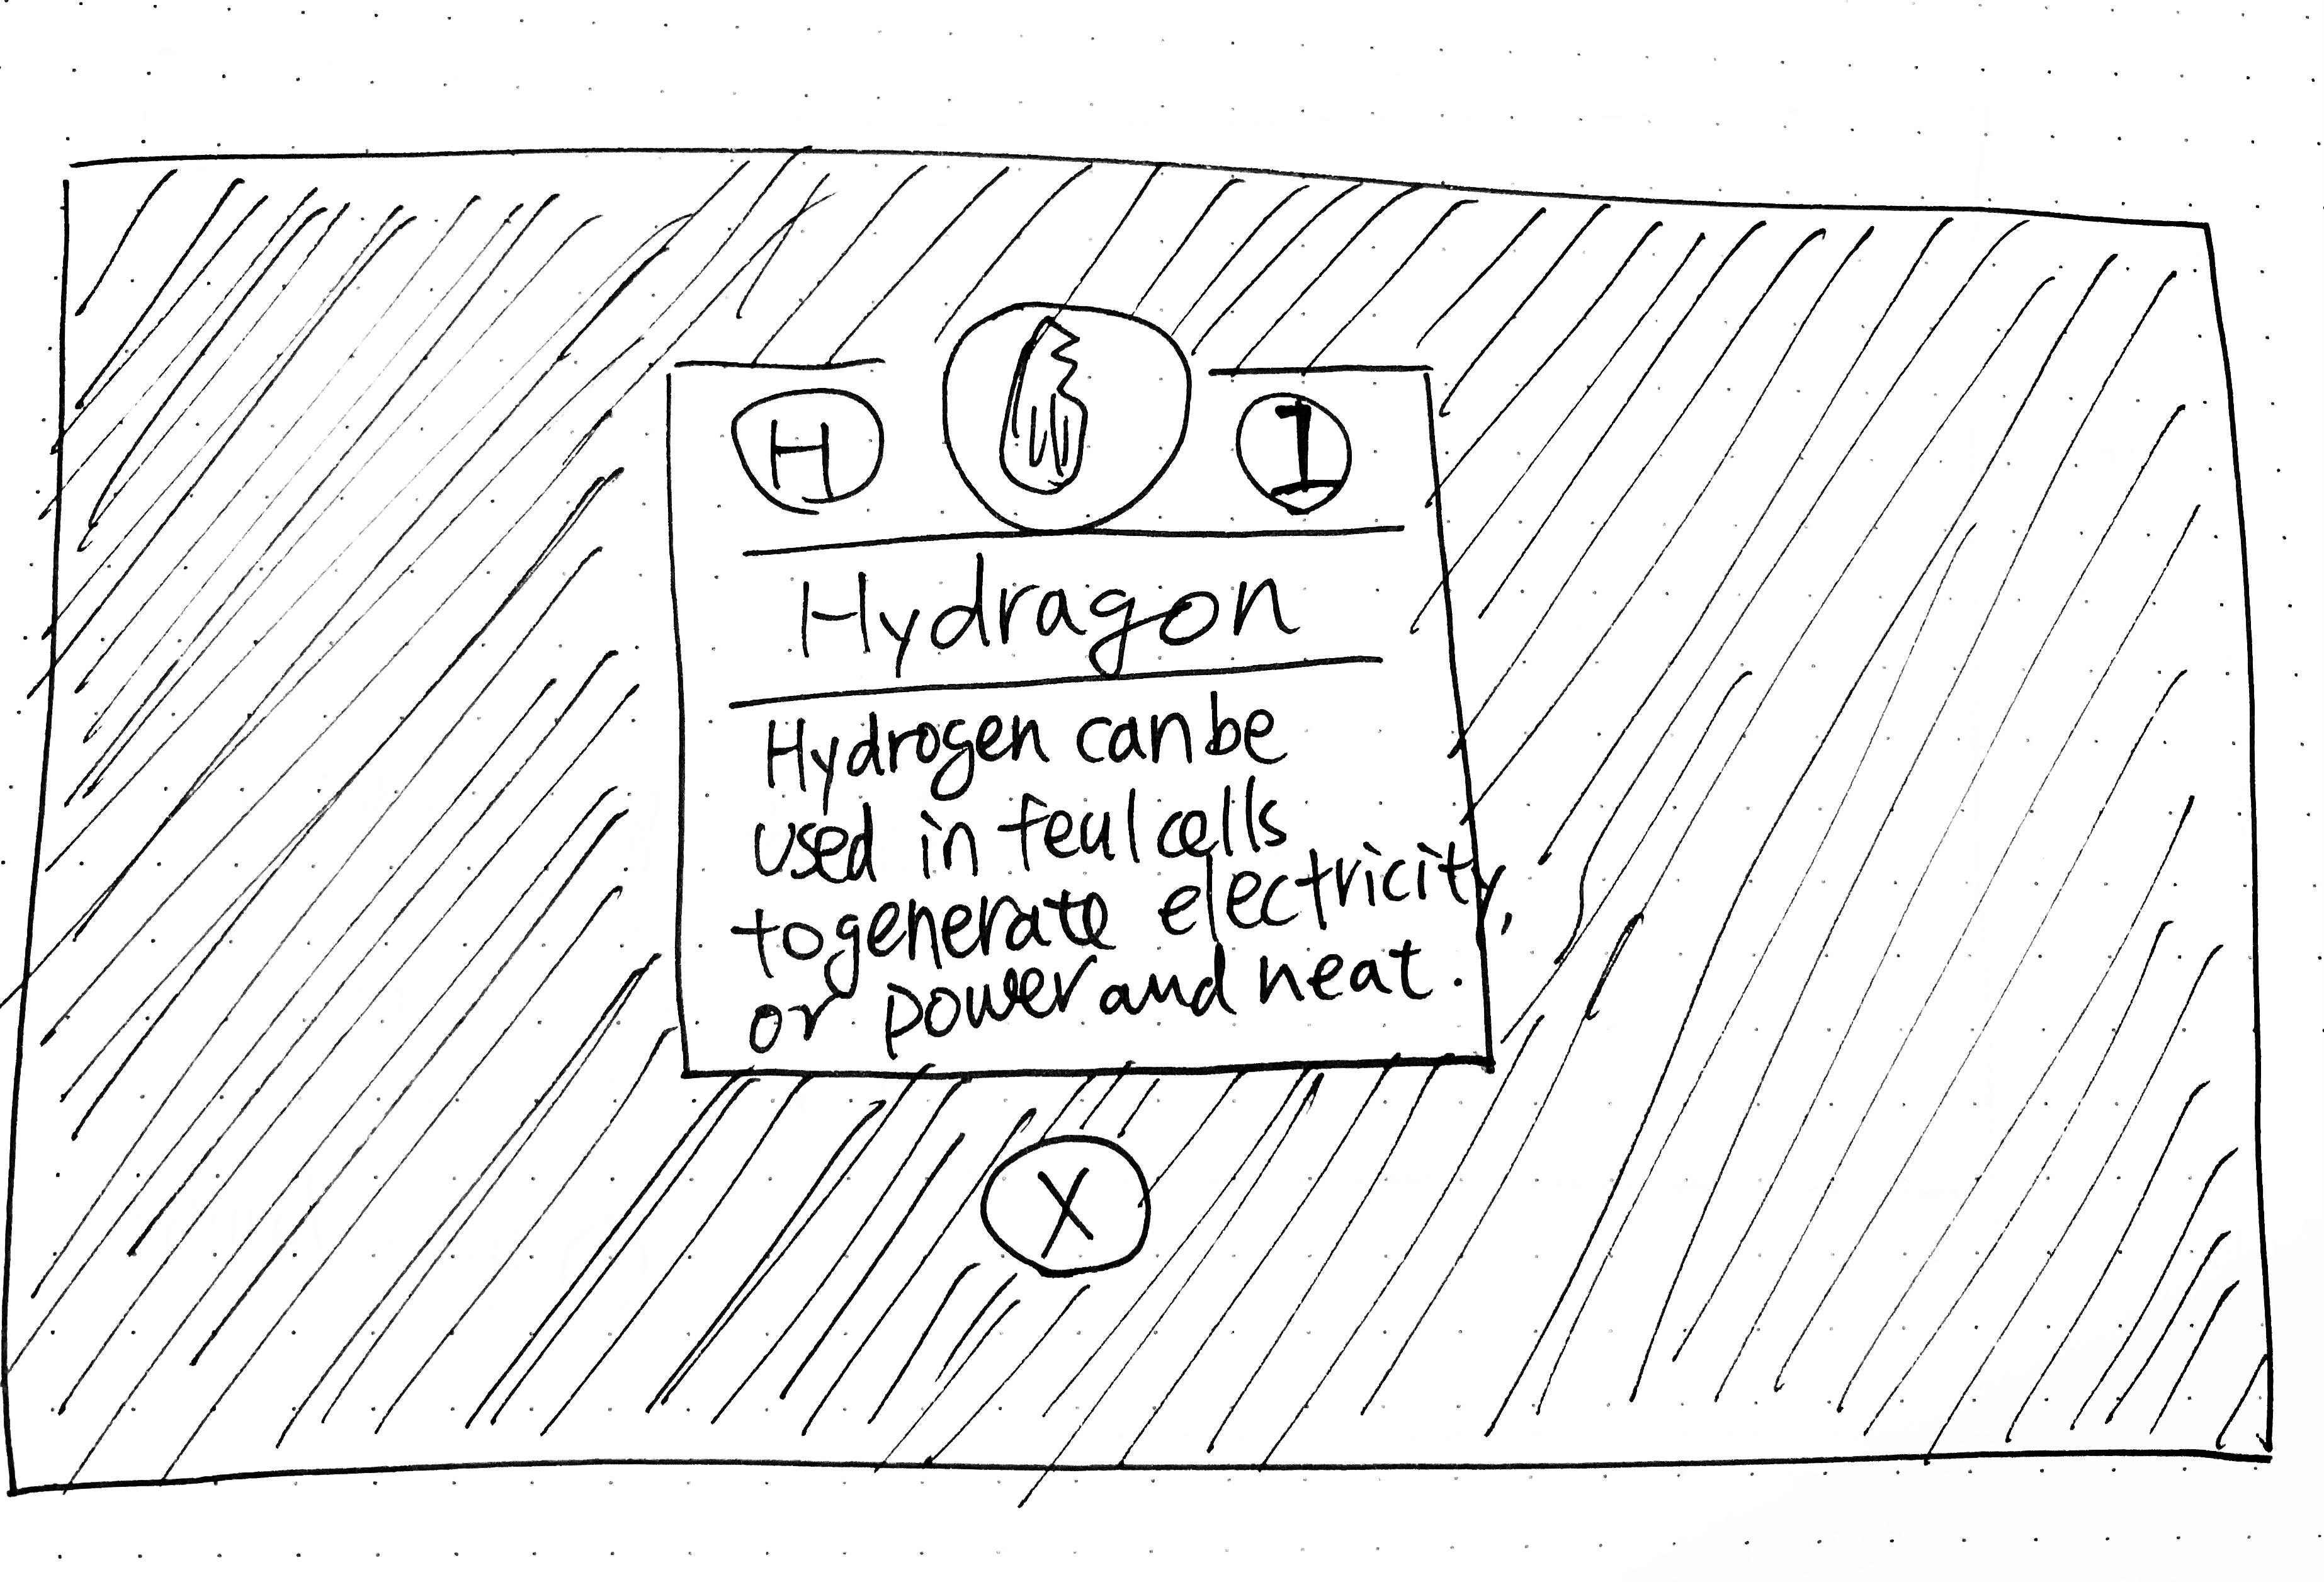 H
1
Hydragon
Hydrogen can be
used in feul cells
to generate electricity,
or power and heat.
X